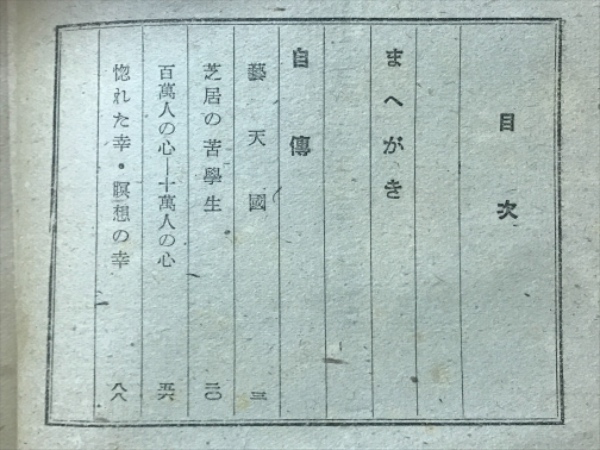 目次
まへがき
自傳
藝天國 三
芝居の苦學生 二〇
百萬人の心―十萬人の心 五六
惚れた幸・瞑想の幸 八八